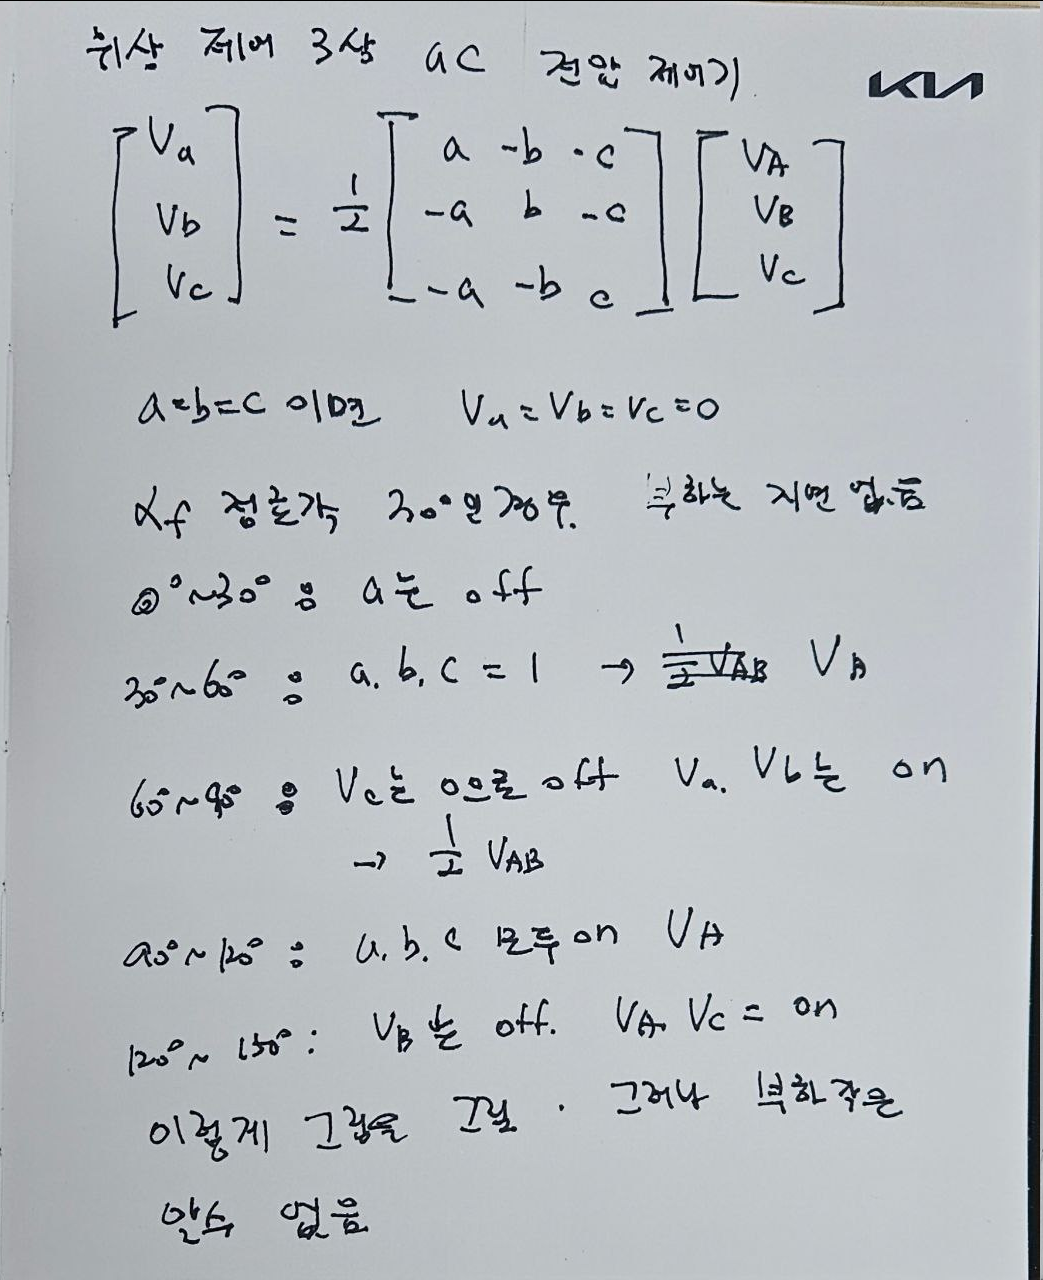 위상 제어 3상 ac 전압 제어기
KIA
[Va Vb Vc] = 1/2 [a -b -c
-a b -c
-a -b c] [VA VB Vc]
a=b=c 이면 Va = Vb = Vc = 0
αf 점호각 30°일 경우. 부하는 지연 없음
0°~30° : a는 off
30°~60° : a, b, c = 1 → 1/2 VAB VA
60°~90° : Vc는 0으로 off Va, Vb는 on
→ 1/2 VAB
90°~120° : a, b, c 모두 on VA
120°~150° : VB는 off. VA, Vc = on
이렇게 그림을 그릴 . 그러나 부하각은
알수 없음